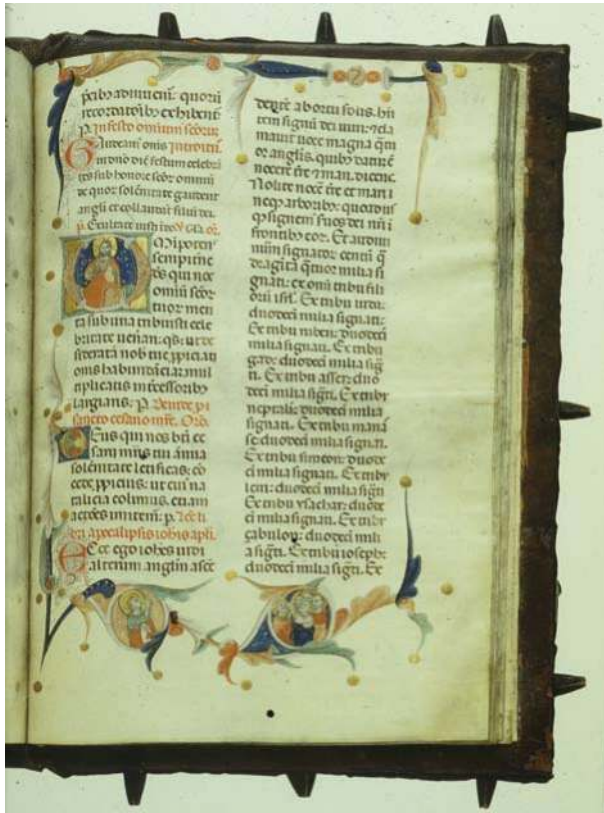 p̃cibȝ adiuueni: quorū
recordatōibȝ exhibent̃
P. In festo omnium scōrum
Gaudeam̄ omīs introitū.
in dnō diē festum celebrā
tes sub honore scōr omniū
de quor solēnitate gaudent
angli et collaudāt filiū dei.
p̄. Exultate iusti
Omnipotens
sempitne
ds qui nos
omniū scōr
tuor meri
ta sub una tribuisti cele
britate uenari: qs: ut de
siderata nob tue ppiciati
onis habundāciā: mul
tiplicatis intercessoribȝ
largiaris: P.
sancto cesario mre. Orō.
Deus qui nos bti ce
sarii mris tui annua
solenitate letificas: cō
cede ppicius: ut cui na
talicia colimus. etiam
actōes imitem̄: p.
bri apocalipsis iohis apli.
Ecce ego iohes uidi
alterum anglm ascē
dentē ab ortu solis. hñ
tem signū dei uiui: et cla
mauit uoce magna qtu
or anglis. quibȝ datū ē
nocere tre et mari. dicēs.
Nolite nocē tre et mari
neqȝ arboribȝ: quoadus
qȝ signem seruos dei nri i
frontibȝ eor. Et audiui
num signator centū q̄
dragīta qtuor milia si
gnati: ex omi tribu fili
orū isrl. Ex tribu iuda:
duodeci milia signati:
Ex tribu ruben: duodeci
milia signati. Ex tribu
gad: duodeci milia sig
ti. Ex tribu asser: duo
deci milia signti. Ex tribu
neptali: duodeci milia
signati. Ex tribu mana
se: duodeci milia signati.
Ex tribu simeon: duode
ci milia signati. Ex tribu
leui: duodeci milia signti
Ex tribu ysachar: duode
ci milia signati. Ex tribu
çabulon: duodeci mili
a signti. Ex tribu ioseph:
duodeci milia signti. Ex